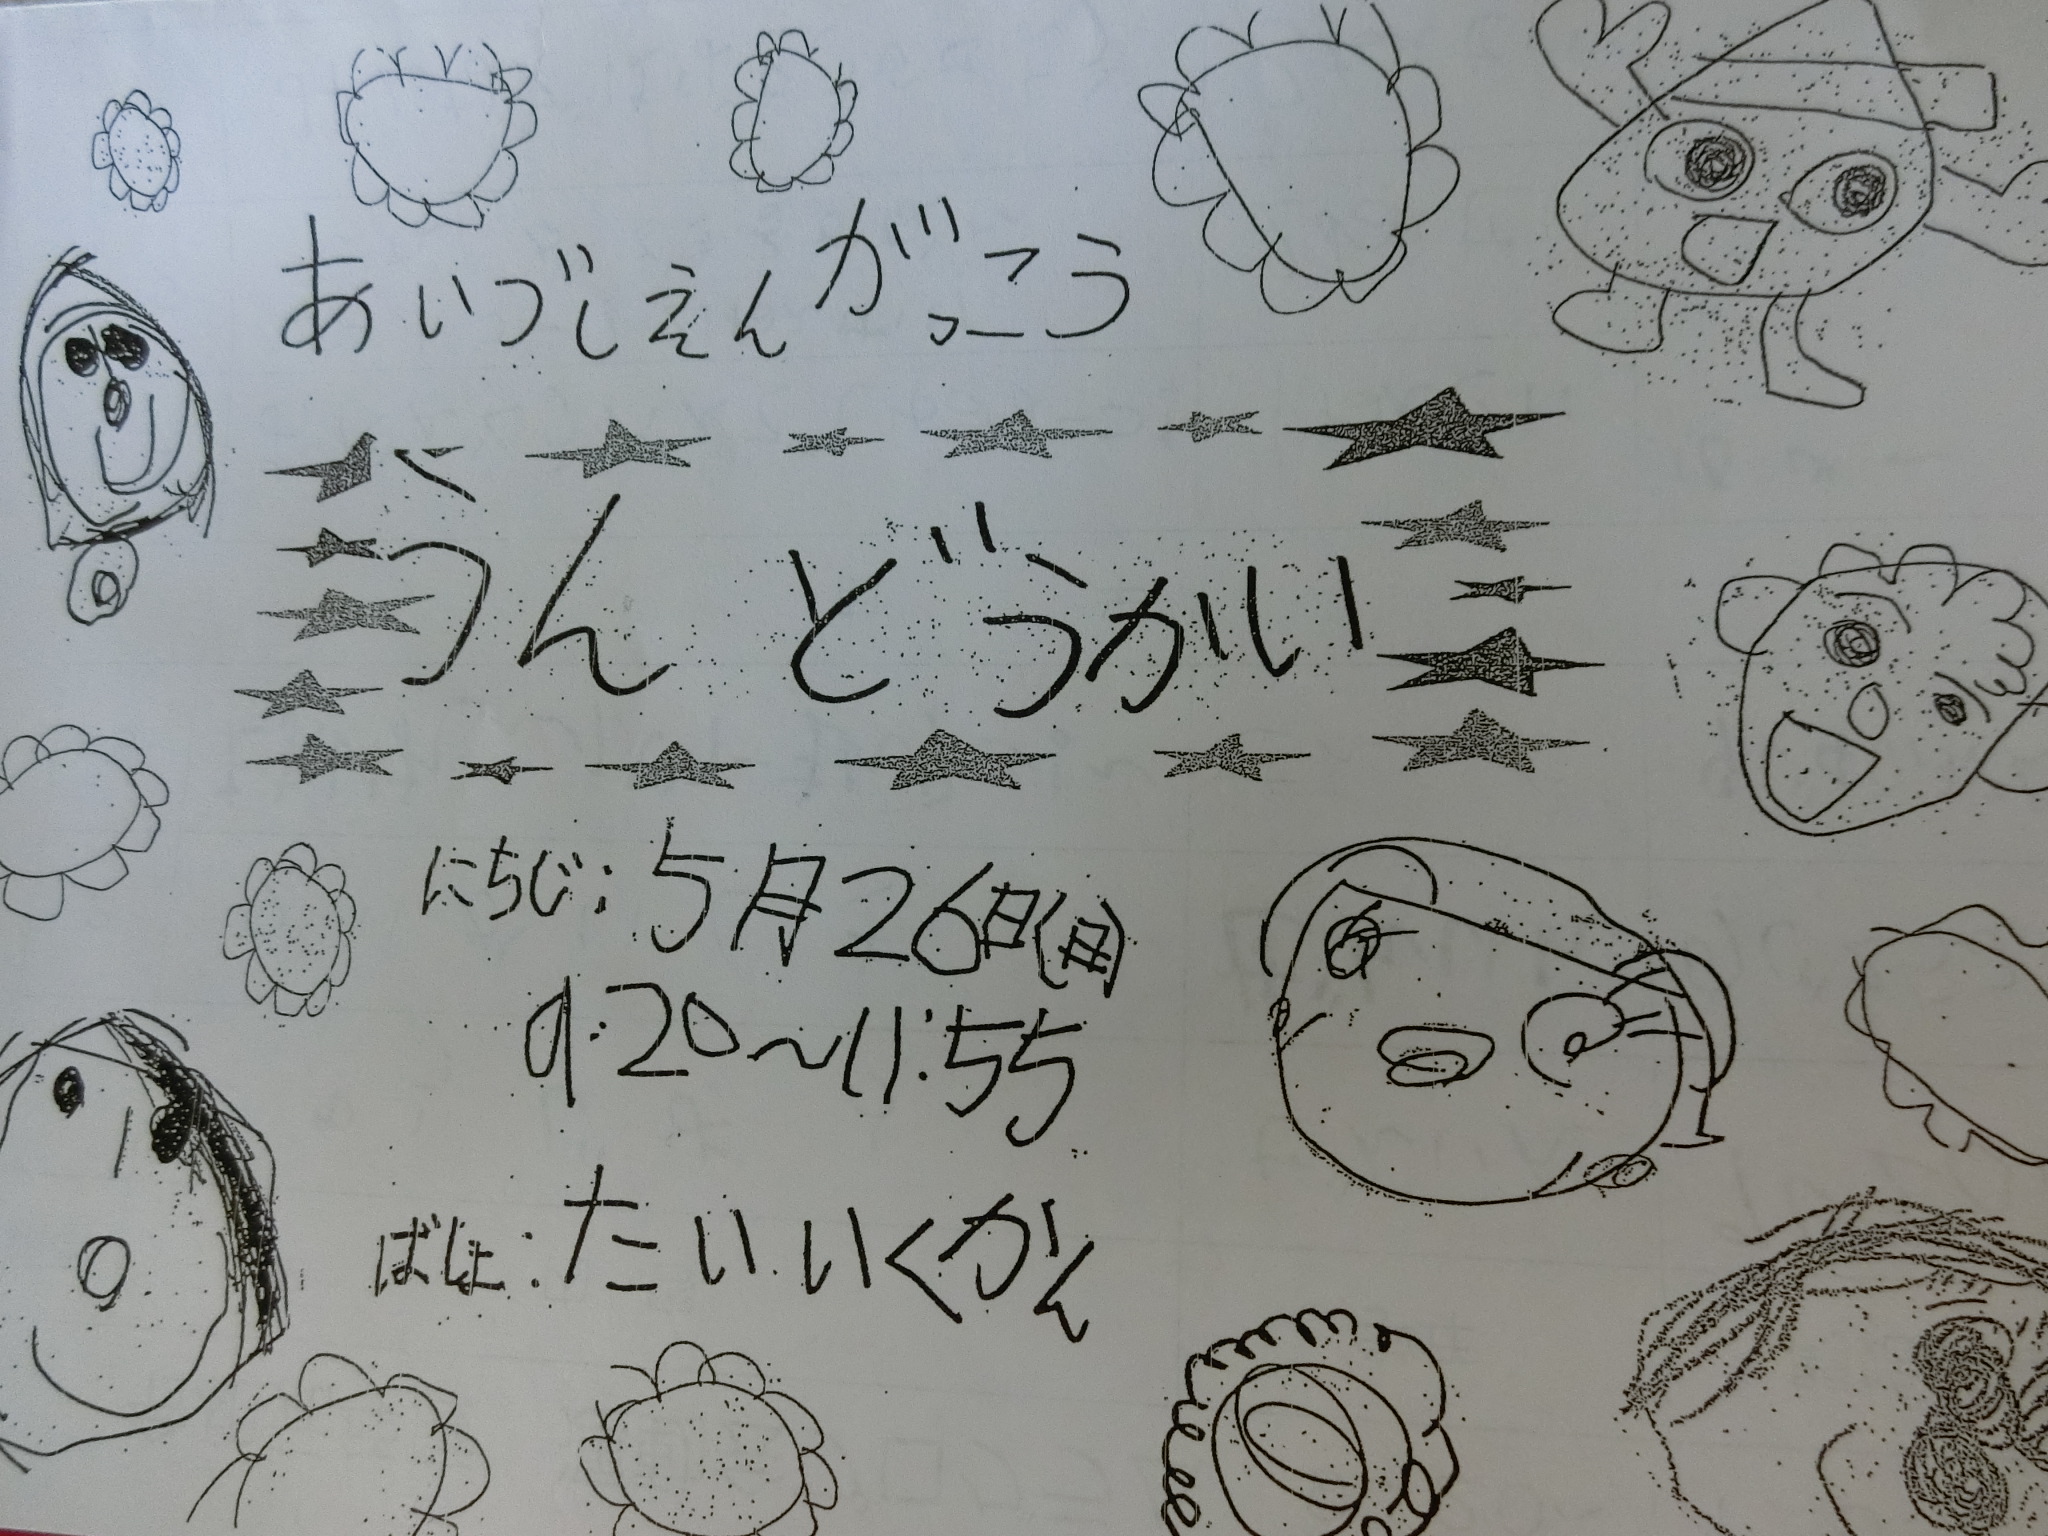 あいづしえんがっこう
うんどうかい
にちじ:5月26日(日)
9:20～11:55
ばしょ:たいいくかん